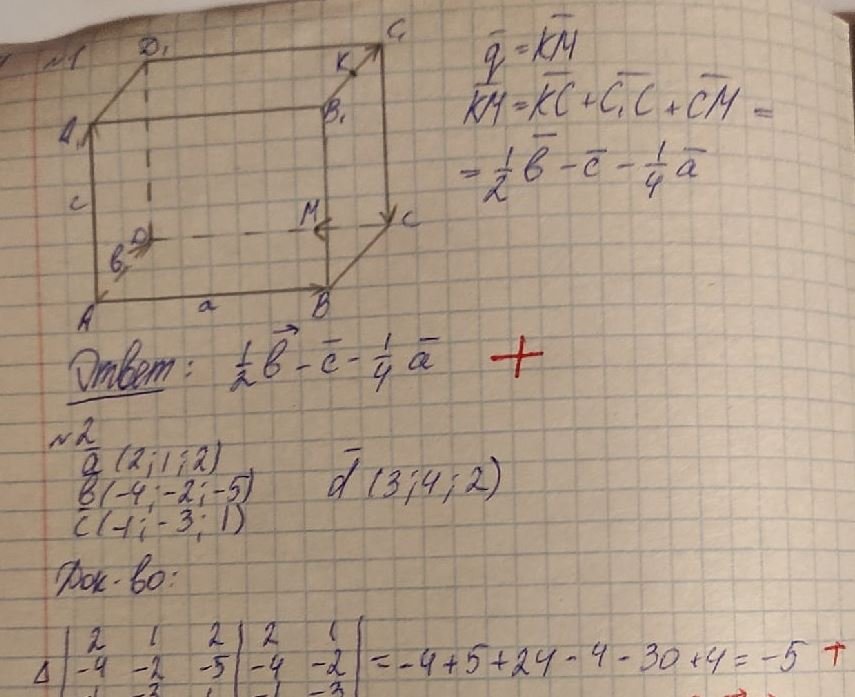 №1
D₁ C₁
K
A₁ B₁
c M C
b D
A a B
q̄ = K̄M̄
K̄M̄ = K̄C̄ + C̄₁C̄ + C̄M̄ =
= 1/2 b̄ - c̄ - 1/4 ā
Ответ: 1/2 b⃗ - c̄ - 1/4 ā +
№2
ā (2; 1; 2)
b̄ (-4; -2; -5) d̄ (3; 4; 2)
c̄ (-1; -3; 1)
Док-во:
Δ | 2 1 2 | 2 1 |
| -4 -2 -5 | -4 -2 | = -4 + 5 + 24 - 4 - 30 + 4 = -5 +
-1 -3 1 -1 -3